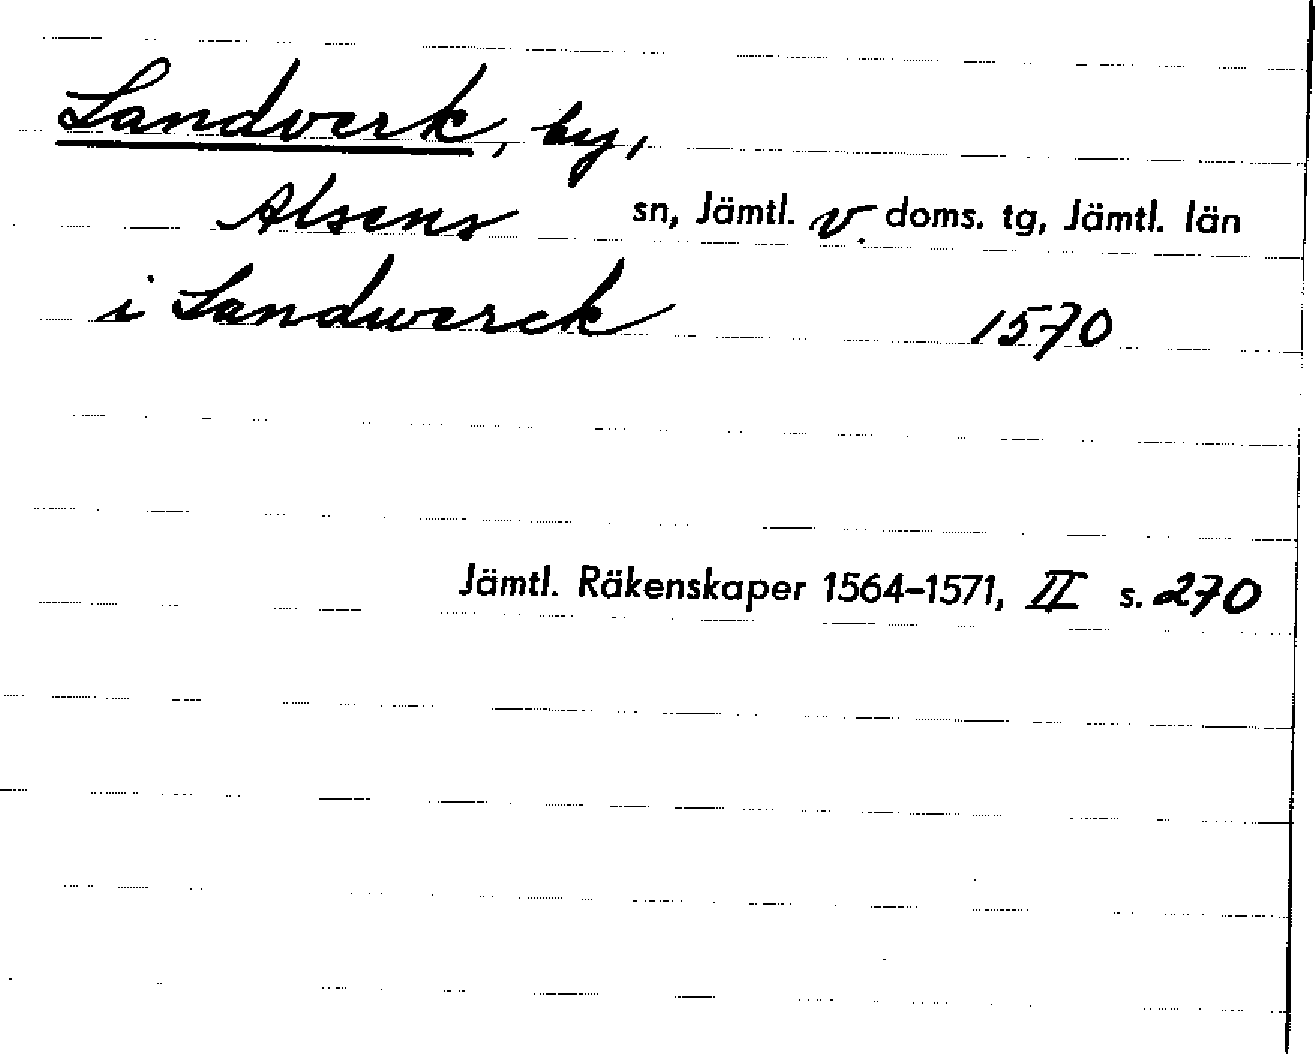 Landverk, by,
Alsens sn, Jämtl. v. doms. tg, Jämtl. län
i Landwerck 1570
Jämtl. Räkenskaper 1564–1571, II s. 270